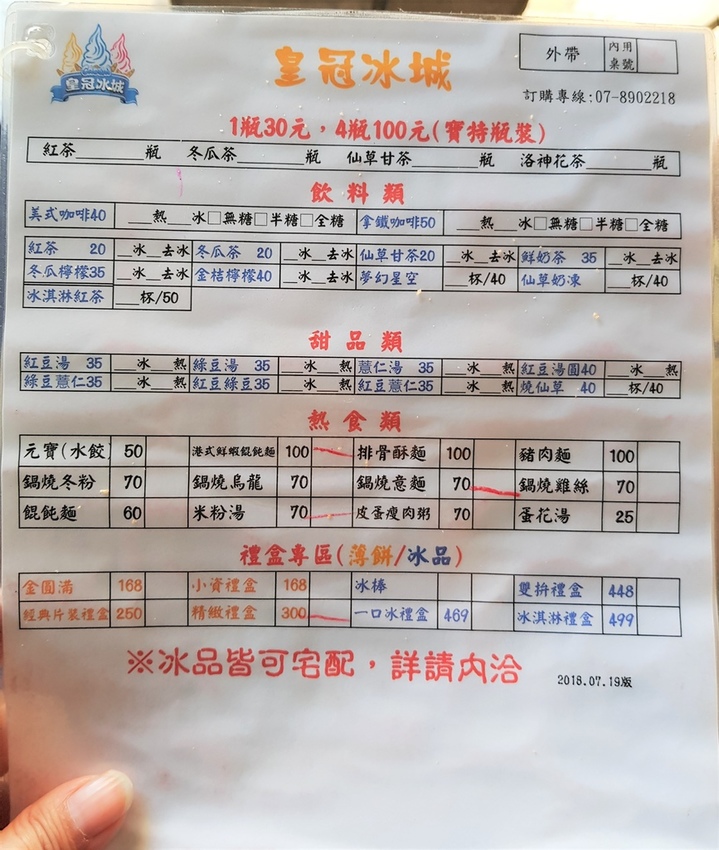 皇冠冰城
皇冠冰城
外帶 內用桌號
訂購專線:07-8902218
1瓶30元，4瓶100元(寶特瓶裝)
紅茶______瓶 冬瓜茶______瓶 仙草甘茶______瓶 洛神花茶______瓶
飲料類
美式咖啡40 __熱__冰□無糖□半糖□全糖 拿鐵咖啡50 __熱__冰□無糖□半糖□全糖
紅茶 20 __冰__去冰 冬瓜茶 20 __冰__去冰 仙草甘茶20 __冰__去冰 鮮奶茶 35 __冰__去冰
冬瓜檸檬35 __冰__去冰 金桔檸檬40 __冰__去冰 夢幻星空 __杯/40 仙草奶凍 __杯/40
冰淇淋紅茶 __杯/50
甜品類
紅豆湯 35 __冰__熱 綠豆湯 35 __冰__熱 薏仁湯 35 __冰__熱 紅豆湯圓40 __冰__熱
綠豆薏仁35 __冰__熱 紅豆綠豆35 __冰__熱 紅豆薏仁35 __冰__熱 燒仙草 40 __杯/40
熱食類
元寶(水餃) 50 港式鮮蝦餛飩麵 100 排骨酥麵 100 豬肉麵 100
鍋燒冬粉 70 鍋燒烏龍 70 鍋燒意麵 70 鍋燒雞絲 70
餛飩麵 60 米粉湯 70 皮蛋瘦肉粥 70 蛋花湯 25
禮盒專區(薄餅/冰品)
金圓滿 168 小資禮盒 168 冰棒 雙拚禮盒 448
經典片裝禮盒 250 精緻禮盒 300 一口冰禮盒 469 冰淇淋禮盒 499
※冰品皆可宅配，詳請內洽
2018.07.19版